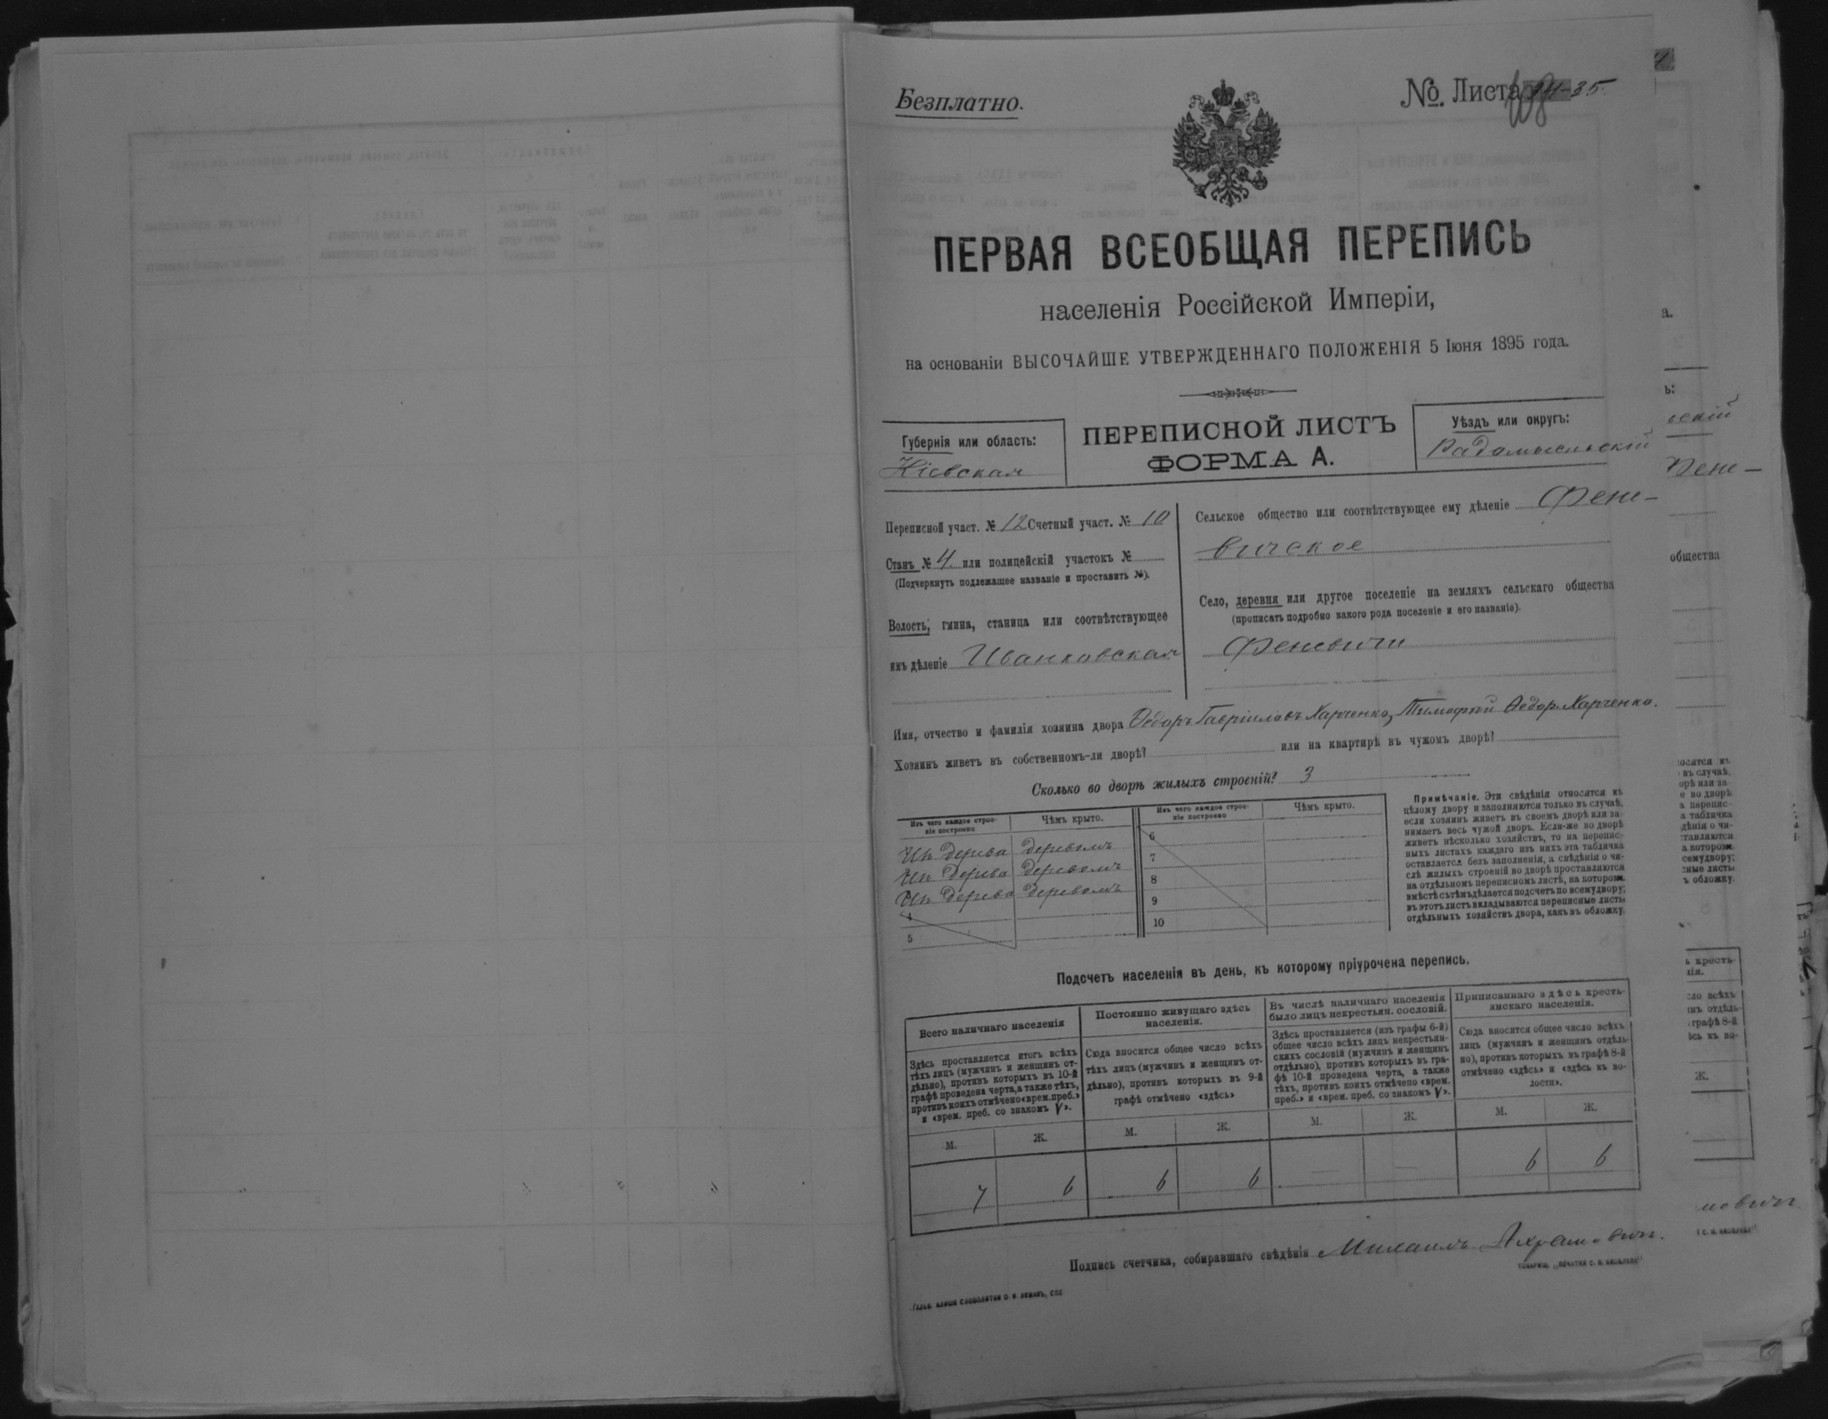 Безплатно.
№ Листа 34-35.
108
ПЕРВАЯ ВСЕОБЩАЯ ПЕРЕПИСЬ
населенія Россійской Имперіи,
на основаніи ВЫСОЧАЙШЕ УТВЕРЖДЕННАГО ПОЛОЖЕНІЯ 5 Іюня 1895 года.
Губернія или область:
Кіевская
ПЕРЕПИСНОЙ ЛИСТЪ
ФОРМА А.
Уѣздъ или округъ:
Радомысльскій
Переписной участ. № 12 Счетный участ. № 10
Станъ № 4. или полицейскій участокъ №
(Подчеркнуть подлежащее названіе и проставить №).
Волость, гмина, станица или соотвѣтствующее
имъ дѣленіе Иванковская
Сельское общество или соотвѣтствующее ему дѣленіе Фене-
вичское
Село, деревня или другое поселеніе на земляхъ сельскаго общества
(прописать подробно какого рода поселеніе и его названіе).
Феневичи
Имя, отчество и фамилія хозяина двора Ѳедоръ Гавріиловъ Харченко, Тимофей Ѳедор. Харченко.
Хозяинъ живетъ въ собственномъ-ли дворѣ? или на квартирѣ въ чужомъ дворѣ?
Сколько во дворѣ жилыхъ строеній? 3
Изъ чего каждое строе-
ніе построено
Чѣмъ крыто.
Изъ чего каждое строе-
ніе построено
Чѣмъ крыто.
Изъ дерева деревомъ
Изъ дерева деревомъ
Изъ дерева деревомъ
4
5
6
7
8
9
10
Примѣчаніе. Эти свѣдѣнія относятся къ
цѣлому двору и заполняются только въ случаѣ,
если хозяинъ живетъ въ своемъ дворѣ или за-
нимаетъ весь чужой дворъ. Если-же во дворѣ
живетъ нѣсколько хозяйствъ, то на перепис-
ныхъ листахъ каждаго изъ нихъ эта табличка
оставляется безъ заполненія, а свѣдѣнія о чи-
слѣ жилыхъ строеній во дворѣ проставляются
на отдѣльномъ переписномъ листѣ, на которомъ
вмѣстѣ съ тѣмъ дѣлается подсчетъ по всему двору;
въ этотъ листъ вкладываются переписные листы
отдѣльныхъ хозяйствъ двора, какъ въ обложку.
Подсчетъ населенія въ день, къ которому пріурочена перепись.
Всего наличнаго населенія
Здѣсь проставляется итогъ всѣхъ
тѣхъ лицъ (мужчинъ и женщинъ от-
дѣльно), противъ которыхъ въ 10-й
графѣ проведена черта, а также тѣхъ,
противъ коихъ отмѣчено «врем. преб.»
и «врем. преб. со знакомъ V».
Постоянно живущаго здѣсь
населенія.
Сюда вносится общее число всѣхъ
тѣхъ лицъ (мужчинъ и женщинъ от-
дѣльно), противъ которыхъ въ 9-й
графѣ отмѣчено «здѣсь»
Въ числѣ наличнаго населенія
было лицъ некрестьян. сословій.
Здѣсь проставляется (изъ графы 6-й)
общее число всѣхъ лицъ некрестьян-
скихъ сословій (мужчинъ и женщинъ
отдѣльно), противъ которыхъ въ гра-
фѣ 10-й проведена черта, а также
тѣхъ, противъ коихъ отмѣчено «врем.
преб.» и «врем. преб. со знакомъ V».
Приписаннаго здѣсь кресть-
янскаго населенія.
Сюда вносится общее число всѣхъ
лицъ (мужчинъ и женщинъ отдѣль-
но), противъ которыхъ въ графѣ 8-й
отмѣчено «здѣсь» и «здѣсь къ во-
лости».
М. Ж. М. Ж. М. Ж. М. Ж.
7 6 6 6 — — 6 6
Подпись счетчика, собиравшаго свѣдѣнія Михаилъ